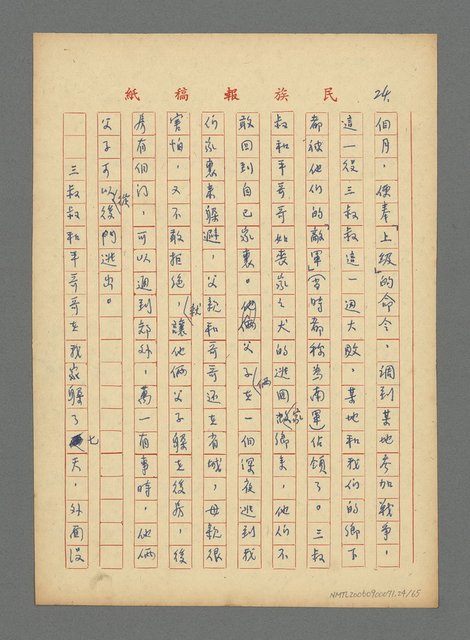 民族報稿紙
24.
個月，便奉「上級」的命令，調到某地參加戰爭，
這一役三叔叔這一邊大敗，某地和我們的鄉下
都被他們的「敵軍」（當時都稱為南軍）佔領了。三叔
叔和平哥哥如喪家之犬的逃回故鄉來，他們不
敢回到自己家裏。他倆父子在一個深夜逃到我
們家裏來躲避，父親和哥哥還在省城，母親很
害怕，又不敢拒絕，就讓他倆父子躲在後房，後
房有個门，可以通到郊外，萬一有事時，他倆
父子可以從後門逃出。
三叔叔和平哥哥在我家躲了七天，外面沒
NMTL20060900071.24/65